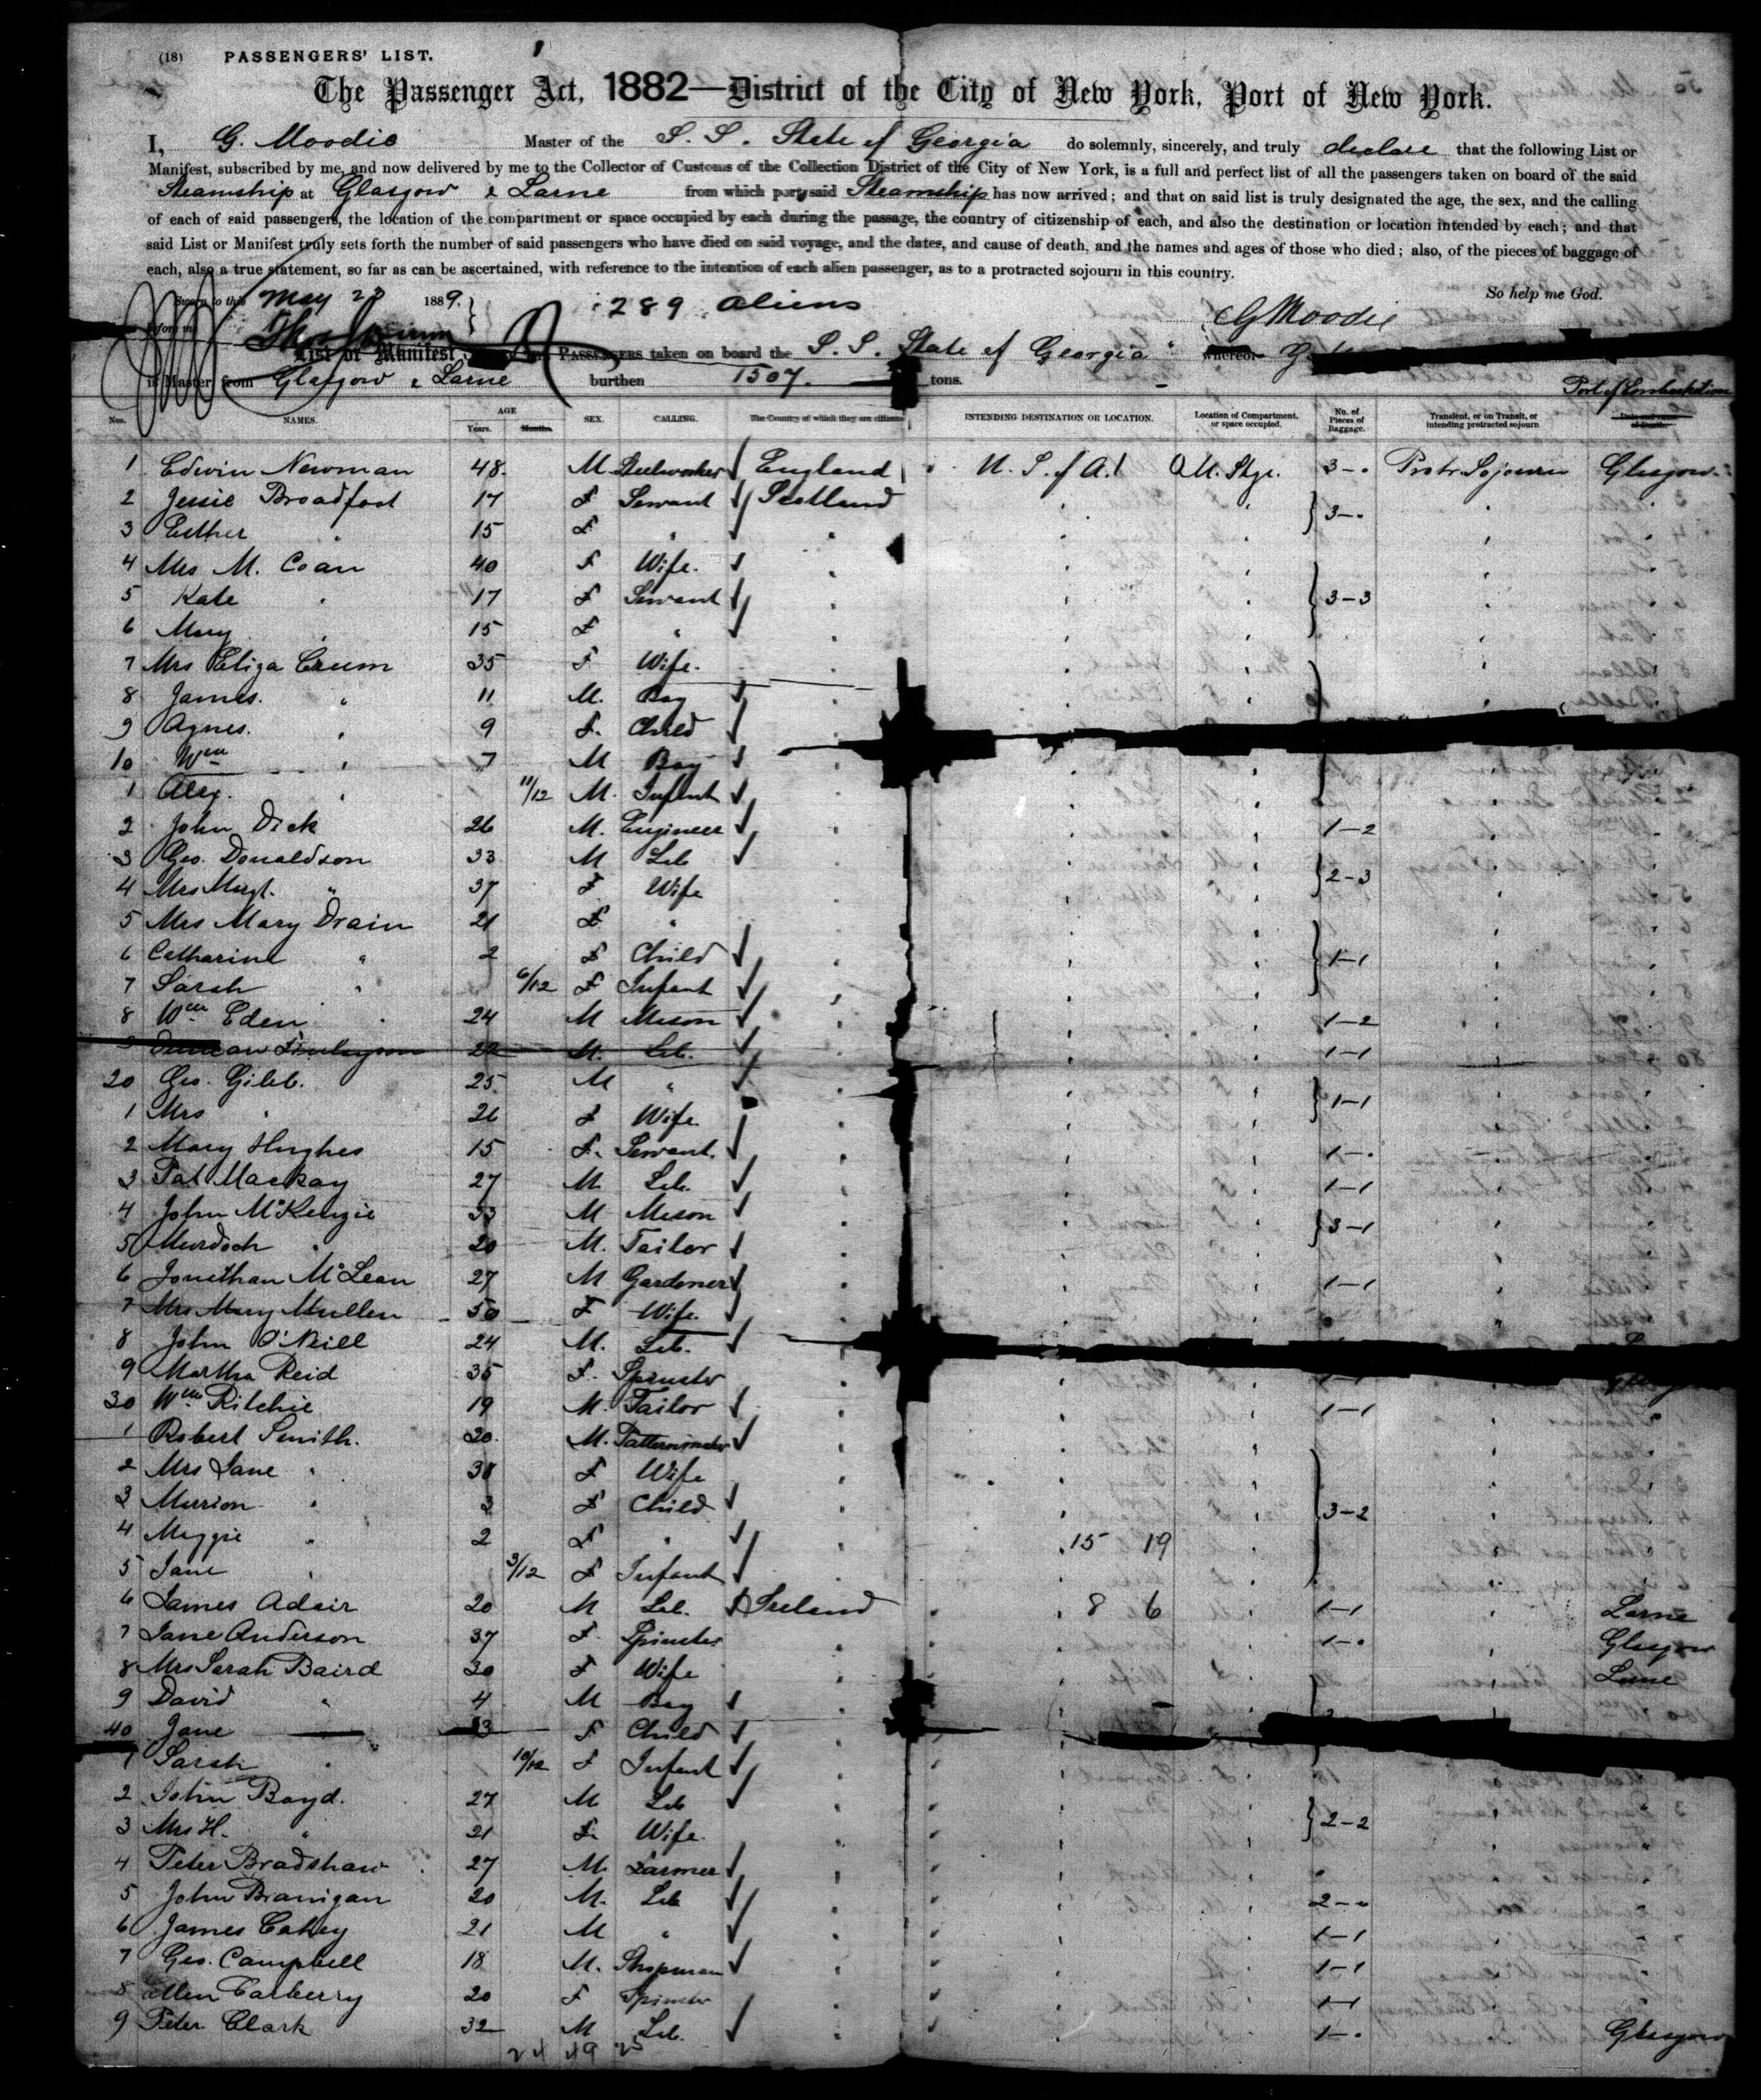 (18) PASSENGERS' LIST.
The Passenger Act, 1882—District of the City of New York, Port of New York.
I, G. Moodie Master of the S. S. State of Georgia do solemnly, sincerely, and truly declare that the following List or
Manifest, subscribed by me, and now delivered by me to the Collector of Customs of the Collection District of the City of New York, is a full and perfect list of all the passengers taken on board of the said
Steamship at Glasgow & Larne from which port, said Steamship has now arrived; and that on said list is truly designated the age, the sex, and the calling
of each of said passengers, the location of the compartment or space occupied by each during the passage, the country of citizenship of each, and also the destination or location intended by each; and that
said List or Manifest truly sets forth the number of said passengers who have died on said voyage, and the dates, and cause of death, and the names and ages of those who died; also, of the pieces of baggage of
each, also a true statement, so far as can be ascertained, with reference to the intention of each alien passenger, as to a protracted sojourn in this country.
So help me God.
Sworn to this May 23 1889.
289 aliens
GMoodie
before me
List or Manifest PASSENGERS taken on board the S. S. State of Georgia whereof G.
is Master, from Glasgow & Larne burthen 1507. tons.
Port of Embarkation
Nos. NAMES. AGE Years. Months. SEX. CALLING. The Country of which they are citizens INTENDING DESTINATION OR LOCATION. Location of Compartment, or space occupied. No. of Pieces of Baggage. Transient, or on Transit, or intending protracted sojourn Date and cause of Death.
1 Edwin Newman 48. M Steelworker England U. S. of A. Stge. 3-. Protr Sojourn Glasgow
2 Jessie Broadfoot 17 F Servant Scotland 3-.
3 Esther " 15 F "
4 Mrs M. Coan 40 F Wife.
5 Kate " 17 F Servant 3-3
6 Mary " 15 F "
7 Mrs Eliza Crum 35 F Wife.
8 James. " 11 M. Boy
9 Agnes. " 9 F. Child
10 Wm " 7 M Boy
1 Alex. " 11/12 M. Infant
2 John Dick 26 M. Engineer 1-2
3 Geo. Donaldson 33 M Lab
4 Mrs Margt. " 37 F Wife 2-3
5 Mrs Mary Drain 21 F "
6 Catharine " 2 F Child 1-1
7 Sarah " 6/12 F Infant
8 Wm Eden 24 M Mason 1-2
M. Lab. 1-1
20 Geo. Gibb. 25 M "
1 Mrs " 26 F Wife 1-1
2 Mary Hughes 15 F. Servant. 1-.
3 Pat Mackay 27 M Lab. 1-1
4 John McKenzie 33 M Mason 3-1
5 Murdoch " 20 M. Tailor
6 Jonathan McLean 27 M Gardener 1-1
7 Mrs Mary Mullen 50 F Wife.
8 John O'Neill 24 M. Lab.
9 Martha Reid 35 F. Spinster 1-1
30 Wm Ritchie 19 M. Tailor 1-1
1 Robert Smith. 20. M. Patternmaker
2 Mrs Jane " F Wife
3 Marion " 3 F Child 3-2
4 Maggie " 2 F " 15 19
5 Jane " 3/12 F Infant
6 James Adair 20 M Lab. Ireland 8 6 1-1 Larne
7 Jane Anderson 37 F. Spinster 1-. Glasgow
8 Mrs Sarah Baird 30 F Wife Larne
9 David " 4 M Boy
40 Jane 3 F Child
1 Sarah " 10/12 F Infant
2 John Boyd. 27 M Lab
3 Mrs H. " 21 F. Wife 2-2
4 Peter Bradshaw 27 M. Farmer
5 John Branigan 20 M. Lab 2-.
6 James Cahey 21 M " 1-1
7 Geo. Campbell 18 M. Shopman 1-1
8 Ellen Carberry 20 F Spinster 1-1
9 Peter Clark 32 M Lab. 1-. Glasgow
24 49 25